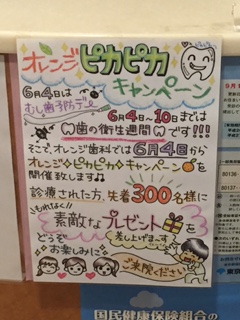 オレンジピカピカ
キャンペーン
6月4日は
むし歯予防デー
6月4日〜10日までは
歯の衛生週間です!!!
そこで、オレンジ歯科では6月4日から
オレンジピカピカキャンペーンを
開催致します♫
診療された方、先着300名様に
いちはやく!!
素敵なプレゼントを
差し上げま〜す
どうぞ
お楽しみに
ご来院ください
国民健康保険組合の